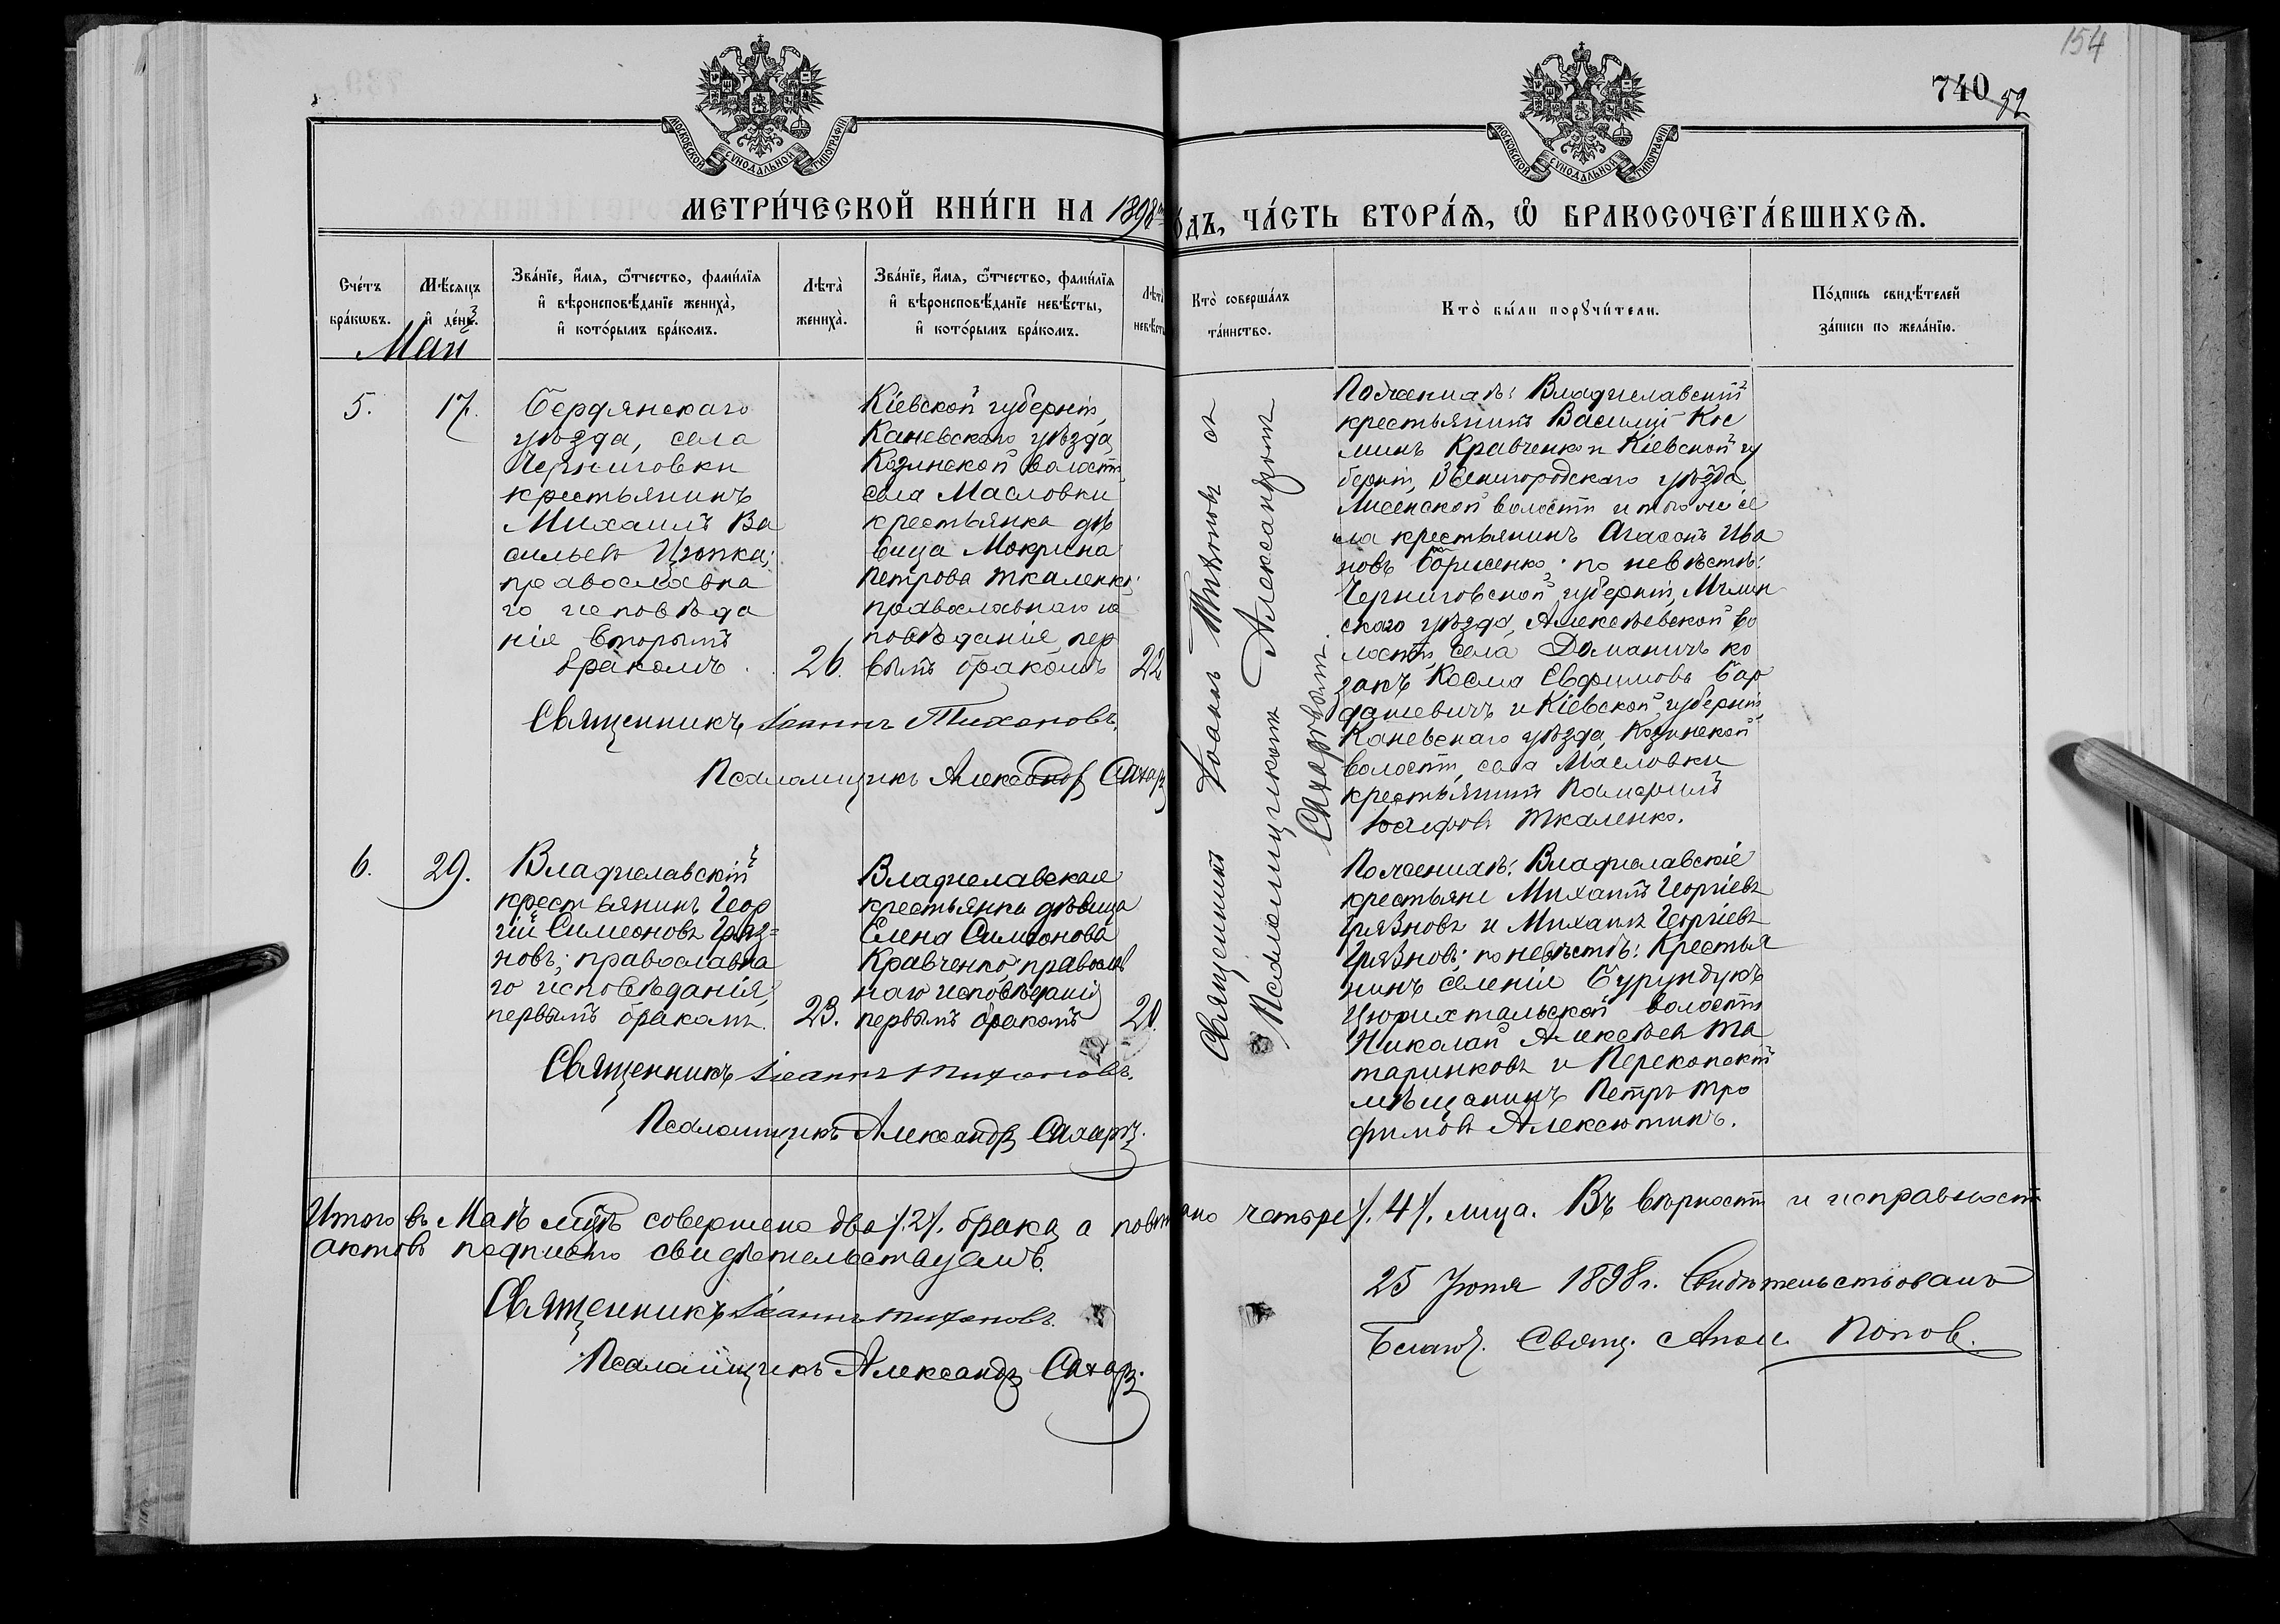 154
740
52
МОСКОВСКОЙ СѴНОДАЛЬНОЙ ТИПОГРАФІИ
МОСКОВСКОЙ СѴНОДАЛЬНОЙ ТИПОГРАФІИ
МЕТРИ́ЧЕСКОЙ КНИ́ГИ НА 1898 го́дъ, ЧА́СТЬ ВТОРА́Ѧ, Ѽ БРАКОСОЧЕТА́ВШИХСѦ.
Сче́тъ бра́кѡвъ.
Мѣ́сѧцъ и҆ де́нь.
Зва́нїе, и҆́мѧ, ѻ҆́тчество, фами́лїѧ
и҆ вѣроисповѣ́данїе жениха̀,
и҆ кото́рымъ бра́комъ.
Лѣта̀
жениха̀.
Зва́нїе, и҆́мѧ, ѻ҆́тчество, фами́лїѧ
и҆ вѣроисповѣ́данїе невѣ́сты,
и҆ кото́рымъ бра́комъ.
Лѣта̀
невѣ́сты
Кто̀ соверша́лъ
та́инство.
Кто̀ бы́ли порꙋчи́тели.
По́дпись свидѣ́телей
за́писи по жела́нїю.
Май
5.
17.
Бердянскаго
уѣзда, села
Черниговки
крестьянинъ
Михаилъ Ва
сильевъ Цюпка;
православна
го исповѣда
нія вторымъ
бракомъ.
26.
Кіевской губерніи,
Каневскаго уѣзда,
Козинской волости,
села Масловки
крестьянка дѣ
вица Мокрина
Петрова Ткаленко;
православнаго ис
повѣданія, пер
вымъ бракомъ
22
Священникъ Іоаннъ Тихоновъ.
Псаломщикъ Александръ Сахар
Священникъ Іоаннъ Тихоновъ съ
Псаломщикомъ Александромъ
Сахаровымъ.
По женихѣ: Владиславскій
крестьянинъ Василій Кос
минъ Кравченко и Кіевской гу
берніи, Звенигородскаго уѣзда
Лисенской волости и того же се
ла крестьянинъ Агафонъ Ива
новъ Борисенко; по невѣстѣ:
Черниговской губерніи, Мглин
скаго уѣзда, Алексѣевской во
лости, села Доманичъ ко
закъ Косма Евфимовъ Бар
дашевичъ и Кіевской губерніи,
Каневскаго уѣзда, Козинской
волости, села Масловки
крестьянинъ
Іосифовъ Ткаленко.
6.
29.
Владиславскій
крестьянинъ Геор
гій Симеоновъ Гряз=
новъ; православна
го исповѣданія,
первымъ бракомъ.
23.
Владиславская
крестьянка дѣвица
Елена Симеонова
Кравченко; православ
наго исповѣданія
первымъ бракомъ
20.
Священникъ Іоаннъ Тихоновъ.
Псаломщикъ Александръ Сахаръ.
По женихѣ: Владиславскіе
крестьяне Михаилъ Георгіевъ
Грязновъ и Михаилъ Георгіевъ
Грязновъ; по невѣстѣ: Крестья
нинъ селенія Бурундукъ
Цюрихтальской волости
Николай Алексѣевъ Та
таринковъ и Перекопскій
мѣщанинъ Петръ Тро
фимовъ Алексютинъ.
Итого въ Маѣ мцѣ совершено два /.2/. брака, а повѣнчано четыре /.4/. лица. Въ вѣрности и исправности
актовъ подписью свидѣтельствуемъ.
Священникъ Іоаннъ Тихоновъ.
Псаломщикъ Александръ Сахар.
25 Іюня 1898 г. Свидѣтельствовалъ
Благоч. Свящ. Попов.